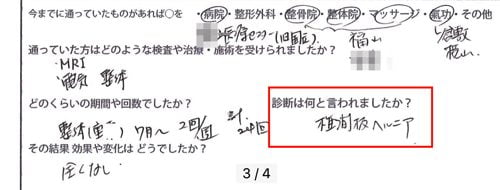 今までに通っていたものがあれば○を 病院・整形外科・整骨院・整体院・マッサージ・氣功・その他
医療センター(1回) 福山 倉敷
通っていた方はどのような検査や治療・施術を受けられましたか? 福山
・MRI
・電気 整体
どのくらいの期間や回数でしたか? 診断は何と言われましたか?
整体 7月〜 2回/週 計 24回 椎間板ヘルニア
その結果 効果や変化は どうでしたか?
全くなし
3 / 4